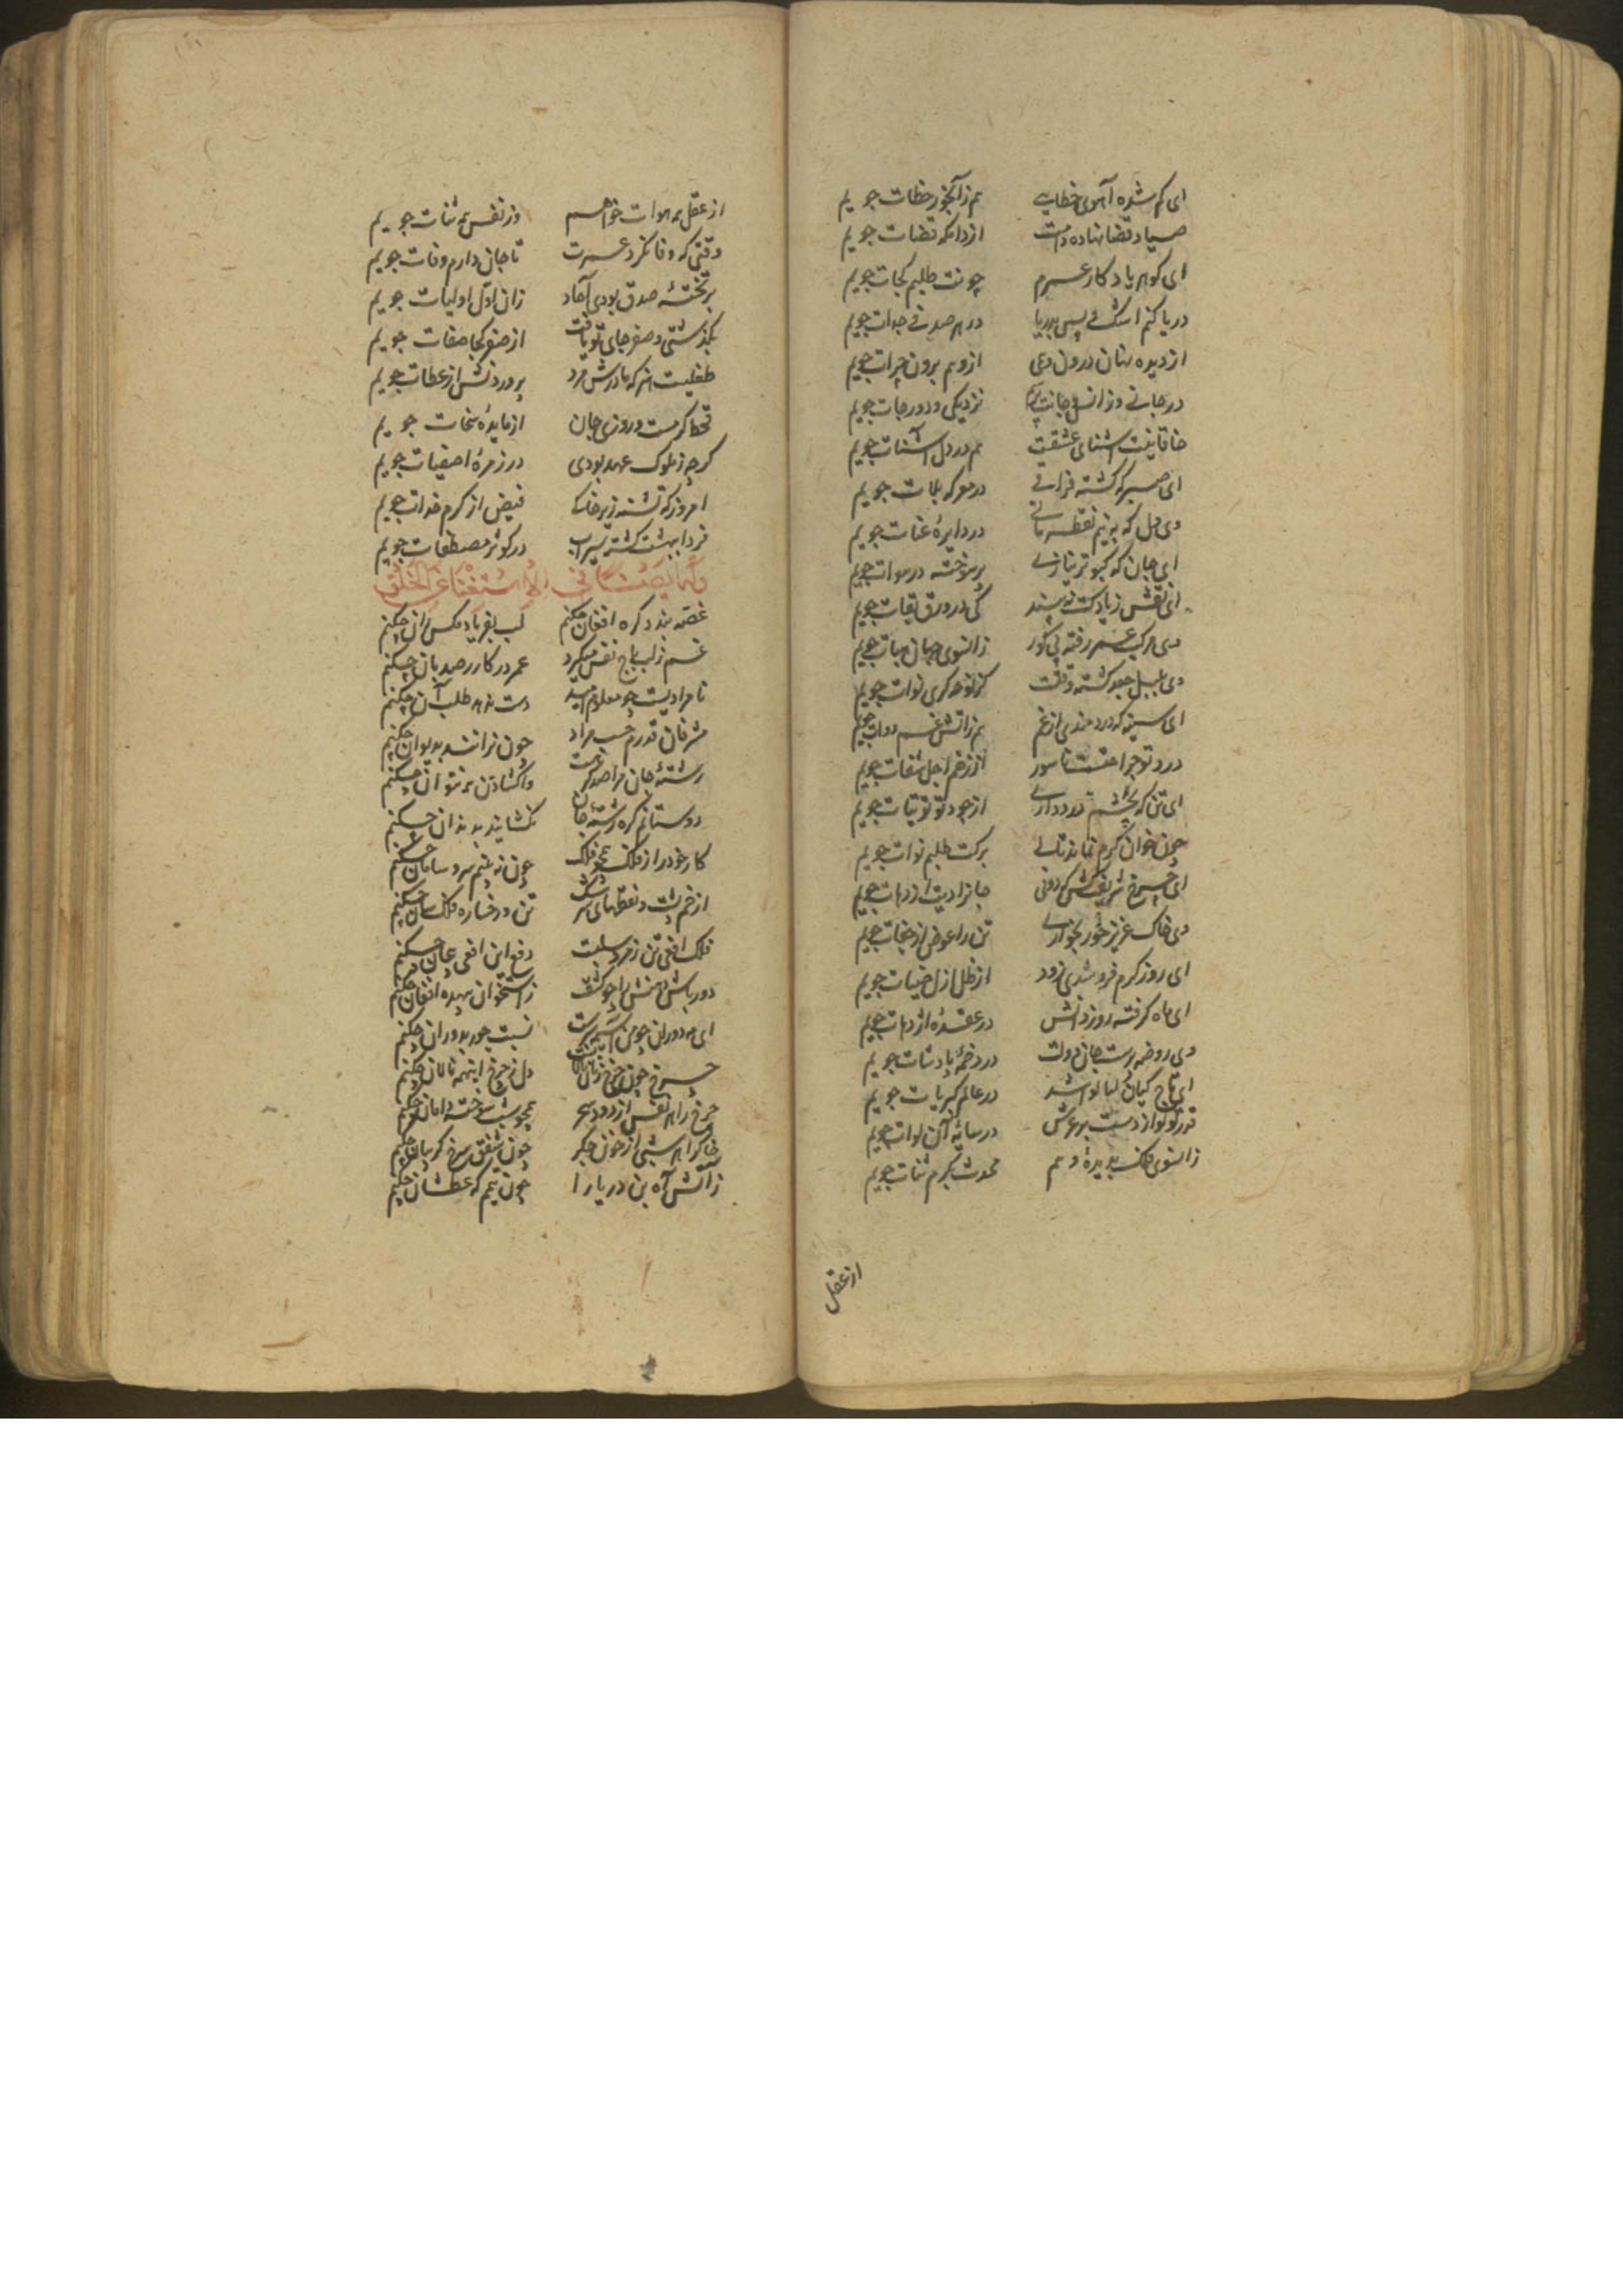 ای کم شده آهوی خطایی هم زآبخور خطات جویم
صیاد قضا نهاده دامت از دامکه قضات جویم
ای کوهر یادکار عمرم چونت طلبم کجات جویم
دریا کنم اشک پس بدریا در هر صدفی جدات جویم
از دیده نهان درون دلی از وهم برون جرات جویم
در جانی و ز انس و جانت پرسم نزدیکی و دور جات جویم
خاقانیت آشنای عشقت هم در دل آشنات جویم
ای صبر که کشته فراقی در معرکه بلات جویم
وی دل که به نیم نقطه مانی در دایره عنات جویم
ای جان که کبوتر نیازی پر سوخته در هوات جویم
ای نقش زیاد کت نه بیند کی در ورق بقات جویم
وی مرکب عمر رفته پی کور زانسوی جهان هبات جویم
وی بلبل جغد کشته وقتت کز نوحه کری نوات جویم
ای سینه که دردمندی از غم هم ز آتش غم دوات جویم
درد تو جراحتست ناسور از زخم اجل شفات جویم
ای تن که بچشم درد داری از جود تو توتیات جویم
چون خوان کرم نماند تا کی برکت طلبم نوات جویم
ای چرخ شریف کش که دونی جانرا دیت از دهات جویم
وی خاک عزیز خور بخواری تن را عوض از جفات جویم
ای روز کرم فرو شدی زود از ظل ازل ضیات جویم
ای ماه کرفته روز دانش در عقده اژدهات جویم
وی روضه پرست جان دولت در دخمه پادشات جویم
ای تاج کیان کیالواشد در عالم کبریات جویم
قدر تو لوا زدست بر عرش در سایه آن لوات جویم
زانسوی فلک بدیده وهم محدث بکرم ثنات جویم
از عقل
از عقل همه هوات خواهم وز نفس همه ثنات جویم
وقتی که وفا نکرد عمرت تا جان دارم وفات جویم
بر تخته صدق بودی آحاد زان اول اولیات جویم
بگذشتی و صفر جای تو یافت از صفر کجا صفات جویم
طفلیست هنر که مادرش مرد پروردنش از عطات جویم
قحط کرمست و روزی جان از مایده سخات جویم
کرچه ز ملوک عهد بودی در زمره اصفیات جویم
امروز که تشنه زیر خاکی فیض از کرم خدات جویم
فردا ببهشت کشته سیراب در کوثر مصطفات جویم
وله ایضا فی الاستغناء عن الخلق
غصه بندد کره افغان چکنم لب بفریاد مکس ران چکنم
غم ز لب باج نفس میکیرد عمر در کار رصدبان چکنم
نامرادیست چو معلوم امید دست ندهد طلب آن چکنم
مشرفان قدرم حسب مراد چون نرانند بدیوان چکنم
رشته جان مرا صد کرهست واکشادن همه نتوان چکنم
دوستانم کره رشته جان نکشایند بدندان چکنم
کار خود را ز فلک همچو فلک چون نه بینم سر و سامان چکنم
از خم پشت و نقطهای سرشک تن و رخساره فلک سان چکنم
فلک افعی تن زمرد سلبست دفع این افعی پیچان چکنم
دور باش دهنش را چو کشف ز استخوان بیهده افغان چکنم
ای مه دوران چو من آسیمه سرست نسبت جور بدوران چکنم
چرخ چون چرخ زنان نالانست دل ز چرخ اینهمه نالان چکنم
چرخ را هر نفس از دود سحر همچو شب سوخته دامان چکنم
خاک را هر شبی از خون جکر چون شفق سرخ کریبان چکنم
ز آتش آه بن دریا را چون تیمم که عطشان چکنم